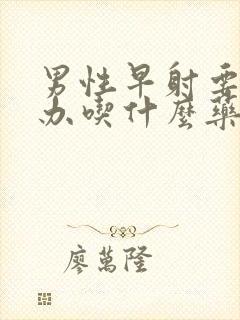 男性早射要
办喫什麼藥
廖萬隆